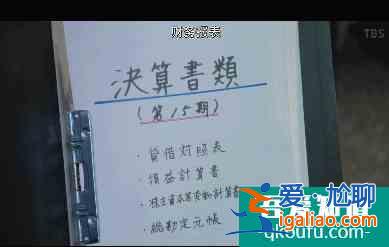 财务报表
TBS
決算書類
(第15期)
・貸借対照表
・損益計算書
・株主資本等変動計算書
・総勘定元帳
爱·尬聊
igaliao.com
qk5ufu.com